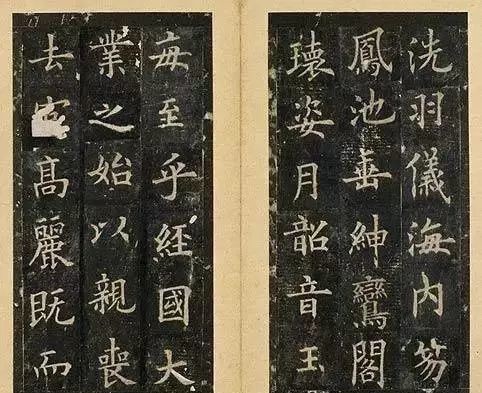 洗羽儀海内笏
鳳池垂紳鸞閣
瓌姿月韶音玉
每至乎經國大
業之始以親喪
去髙麗既而